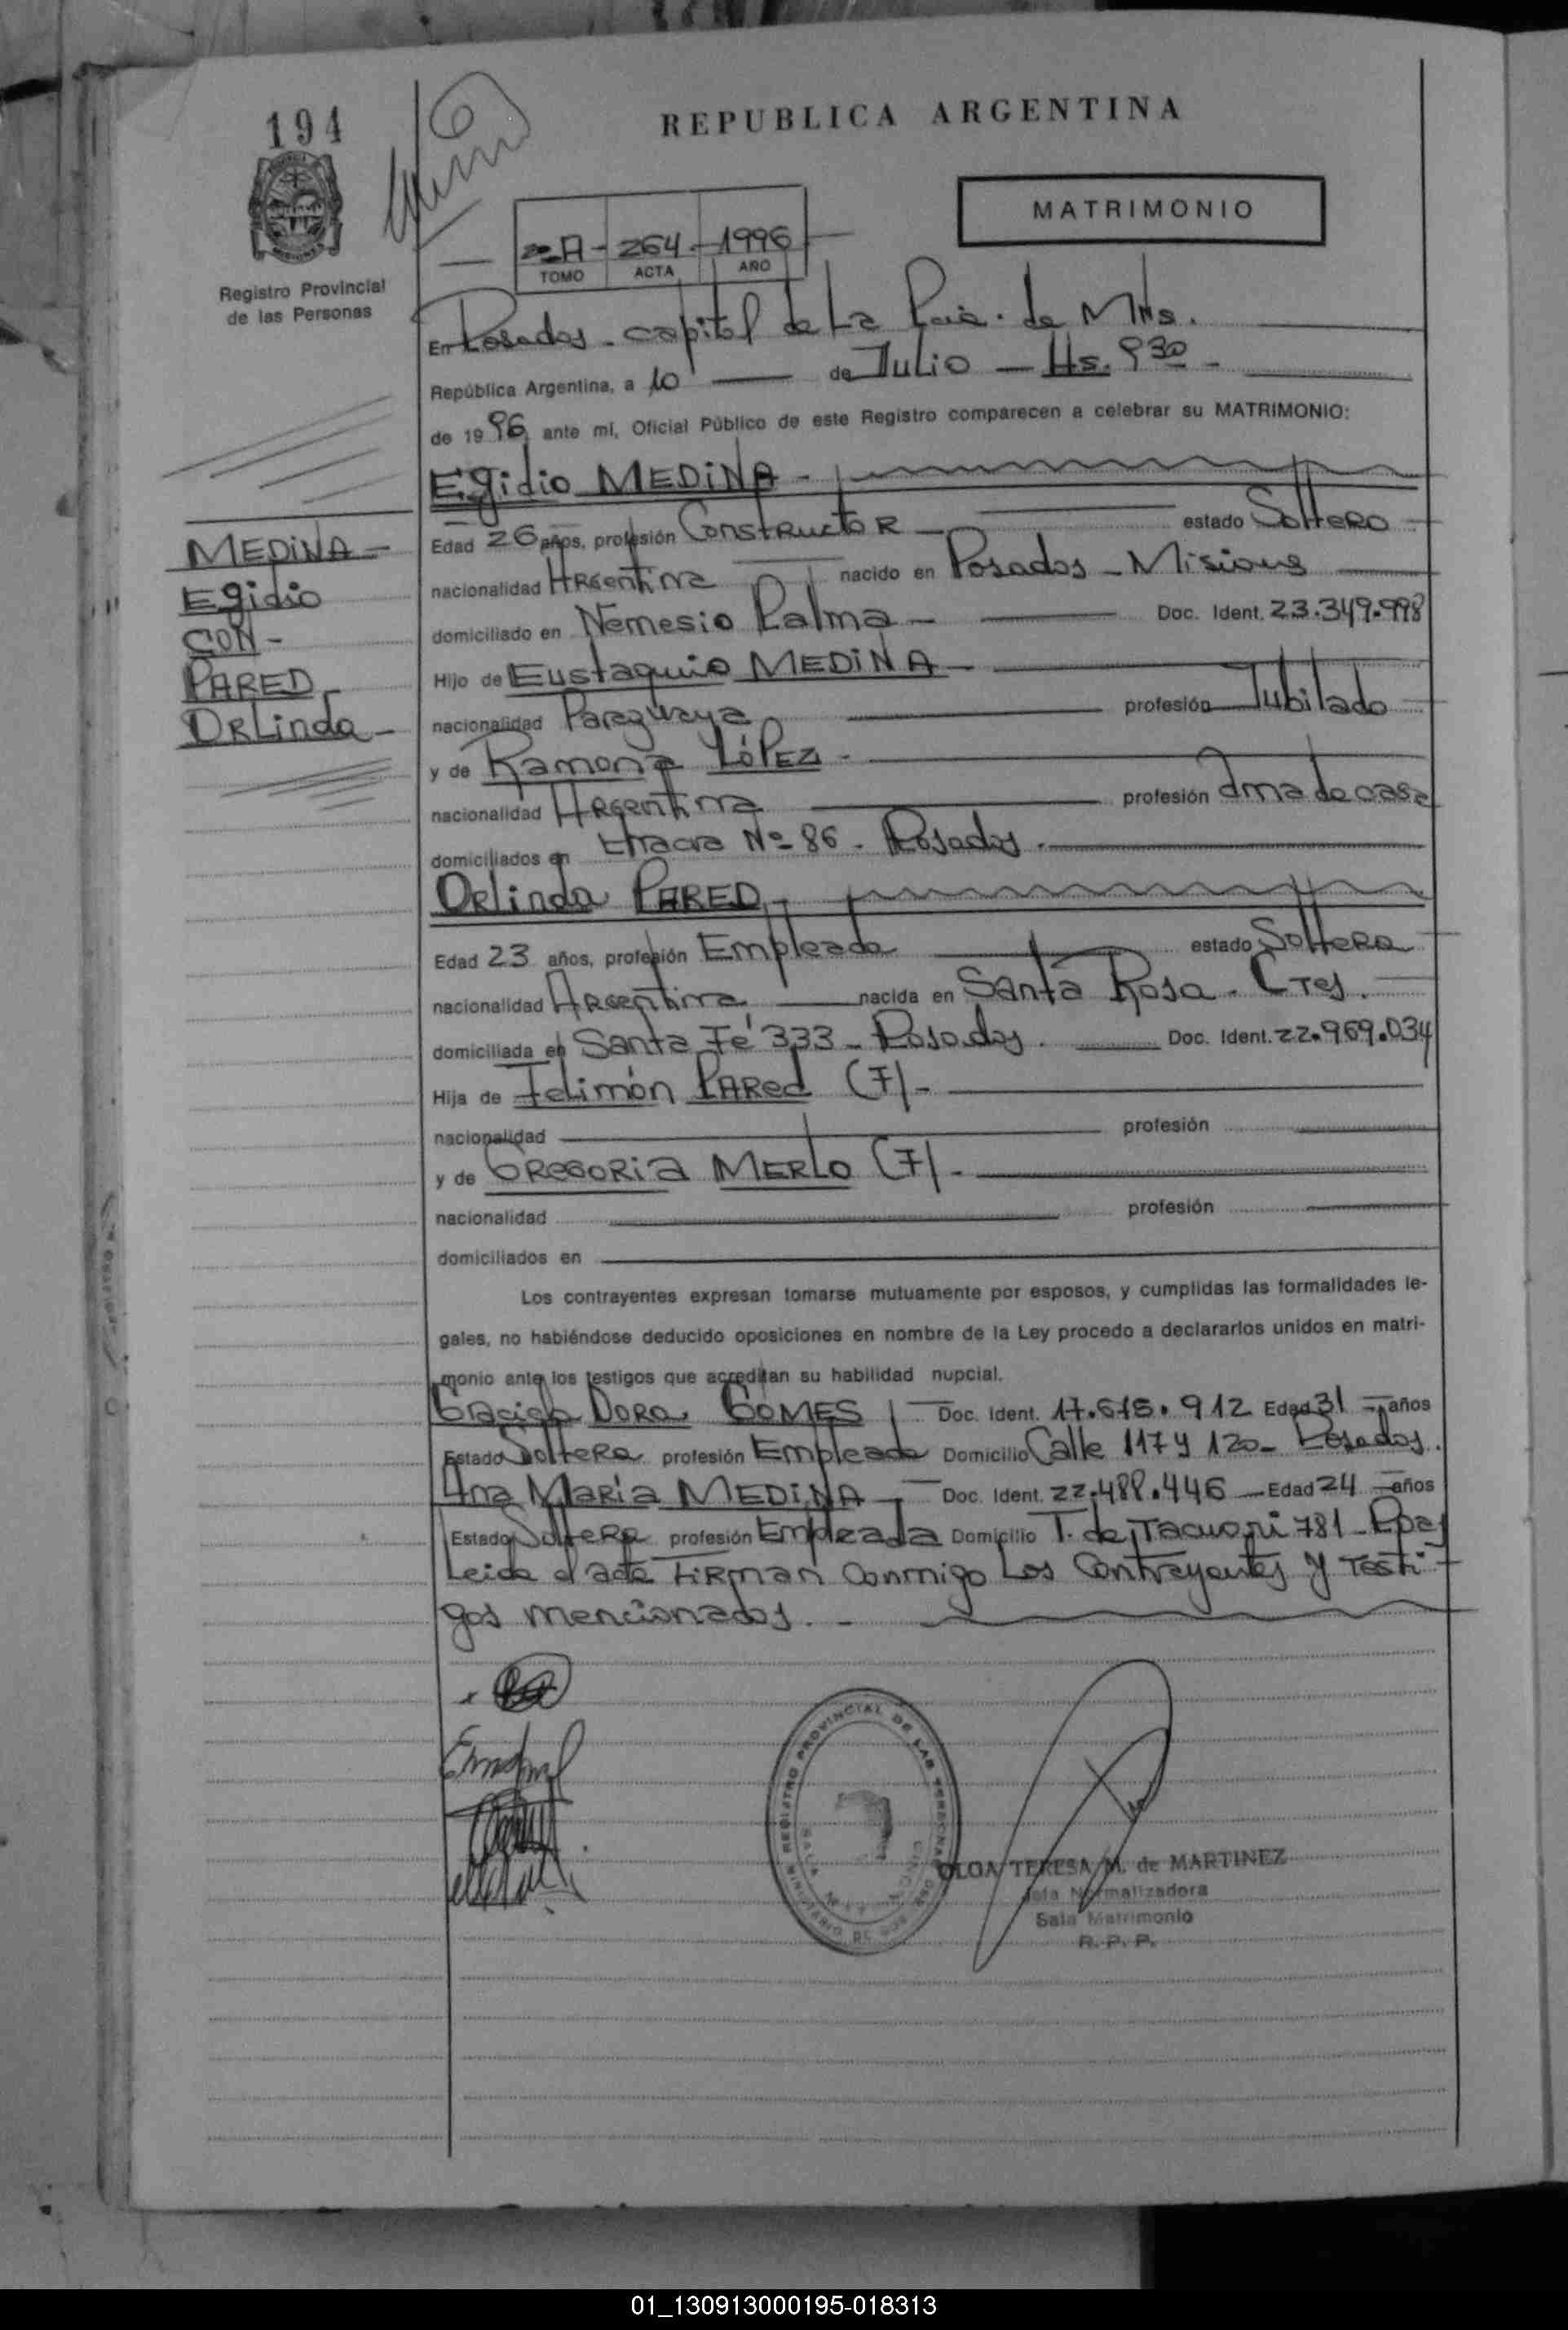 194
REPUBLICA ARGENTINA
MATRIMONIO
A - 264 - 1996
TOMO ACTA AÑO
Registro Provincial
de las Personas
En Posadas - capital de La Pcia. de Mnes.
República Argentina, a 10 de Julio - Hs. 9 30 -
de 19 96 ante mí, Oficial Público de este Registro comparecen a celebrar su MATRIMONIO:
Egidio MEDINA -
Edad 26 años, profesión Constructor - estado Soltero
MEDINA -
Egidio
CON -
PARED
ORLinda -
nacionalidad Argentina nacido en Posadas - Misiones
domiciliado en Nemesio Palma - Doc. Ident. 23.349.998
Hijo de Eustaquio MEDINA -
nacionalidad Paraguaya profesión Jubilado
y de Ramona LÓPEZ -
nacionalidad Argentina profesión Ama de casa
domiciliados en Chacra Nº 86 - Posadas.
ORlinda PARED -
Edad 23 años, profesión Empleada estado Soltera
nacionalidad Argentina nacida en Santa Rosa - Ctes.
domiciliada en Santa Fé 333 - Posadas. Doc. Ident. 22.969.034
Hija de Felimón PARed (F) -
nacionalidad profesión
y de GREGORIA MERLO (F) -
nacionalidad profesión
domiciliados en
Los contrayentes expresan tomarse mutuamente por esposos, y cumplidas las formalidades le-
gales, no habiéndose deducido oposiciones en nombre de la Ley procedo a declararlos unidos en matri-
monio ante los testigos que acreditan su habilidad nupcial.
Dora GOMES Doc. Ident. 17.615.912 Edad 31 años
Estado Soltera profesión Empleada Domicilio Calle 117 y 120 - Posadas.
Ana María MEDINA - Doc. Ident. 22.488.446 - Edad 24 años
Estado Soltera profesión Empleada Domicilio T. de Tacuari 781 - Pdas
Leida el acta FIRman conmigo Los Contrayentes y Testi-
gos mencionados. -
REGISTRO PROVINCIAL DE LAS PERSONAS
OLGA TERESA M. de MARTINEZ
Jefa Normalizadora
Sala Matrimonio
R. P. P.
01_130913000195-018313